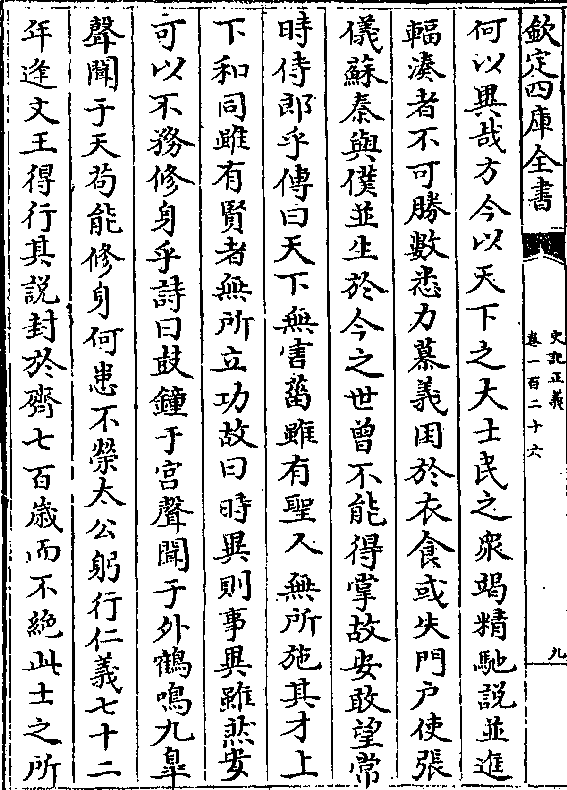 欽定四庫全書
史記正義
卷一百二十六
九
何以異哉方今以天下之大士民之衆竭精馳說並進
輻湊者不可勝數悉力慕義困於衣食或失門户使張
儀蘇秦與僕並生於今之世曾不能得掌故安敢望常
時侍郎乎傳曰天下無害菑雖有聖人無所施其才上
下和同雖有賢者無所立功故曰時異則事異雖然安
可以不務修身乎詩曰鼓鐘于宮聲聞于外鶴鳴九臯
聲聞于天苟能修身何患不榮太公躬行仁義七十二
年逢文王得行其說封於齊七百歲而不絶此士之所